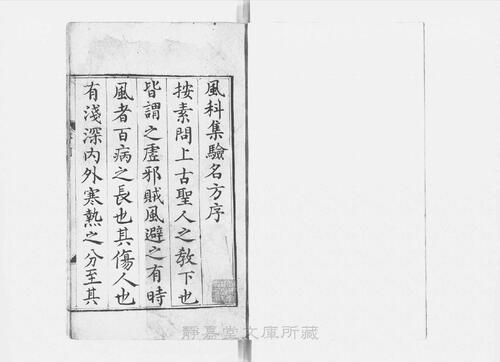 風科集驗名方序
按素問上古聖人之教下也
皆謂之虛邪賊風避之有時
風者百病之長也其傷人也
有淺深內外寒熱之分至其
靜嘉堂文庫所藏